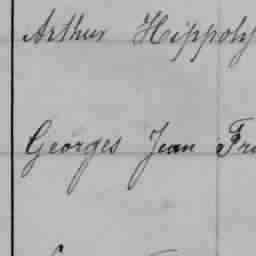 Arthur Hippoly
Georges Jean Fr